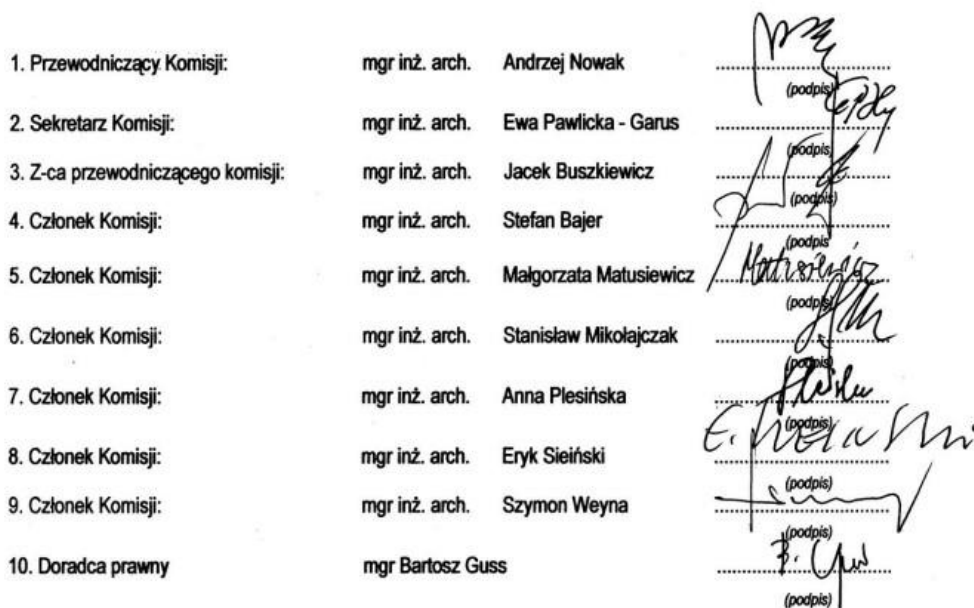 1. Przewodniczący Komisji: mgr inż. arch. Andrzej Nowak
(podpis)
2. Sekretarz Komisji: mgr inż. arch. Ewa Pawlicka - Garus
(podpis)
3. Z-ca przewodniczącego komisji: mgr inż. arch. Jacek Buszkiewicz
(podpis)
4. Członek Komisji: mgr inż. arch. Stefan Bajer
(podpis
5. Członek Komisji: mgr inż. arch. Małgorzata Matusiewicz Matusiewicz
(podpis)
6. Członek Komisji: mgr inż. arch. Stanisław Mikołajczak
(podpis)
7. Członek Komisji: mgr inż. arch. Anna Plesińska
(podpis)
8. Członek Komisji: mgr inż. arch. Eryk Sieiński
(podpis)
9. Członek Komisji: mgr inż. arch. Szymon Weyna
(podpis)
10. Doradca prawny mgr Bartosz Guss
(podpis)